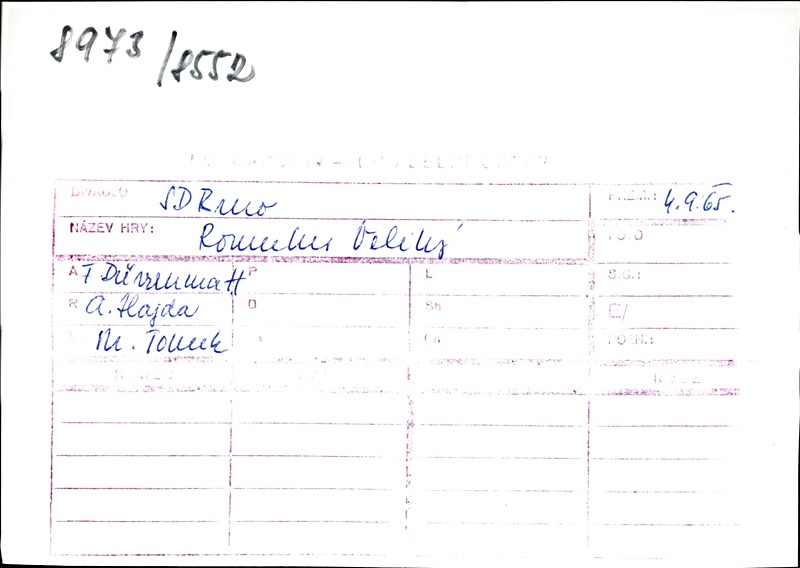 8973/8552
DIVADLO SD Brno PREM.: 4.9.65.
NÁZEV HRY: Romulus Veliký FOTO
A F Dürrenmatt P L S.G.:
R A. Hajda D Sh Č/
M. Tomek POZN.: